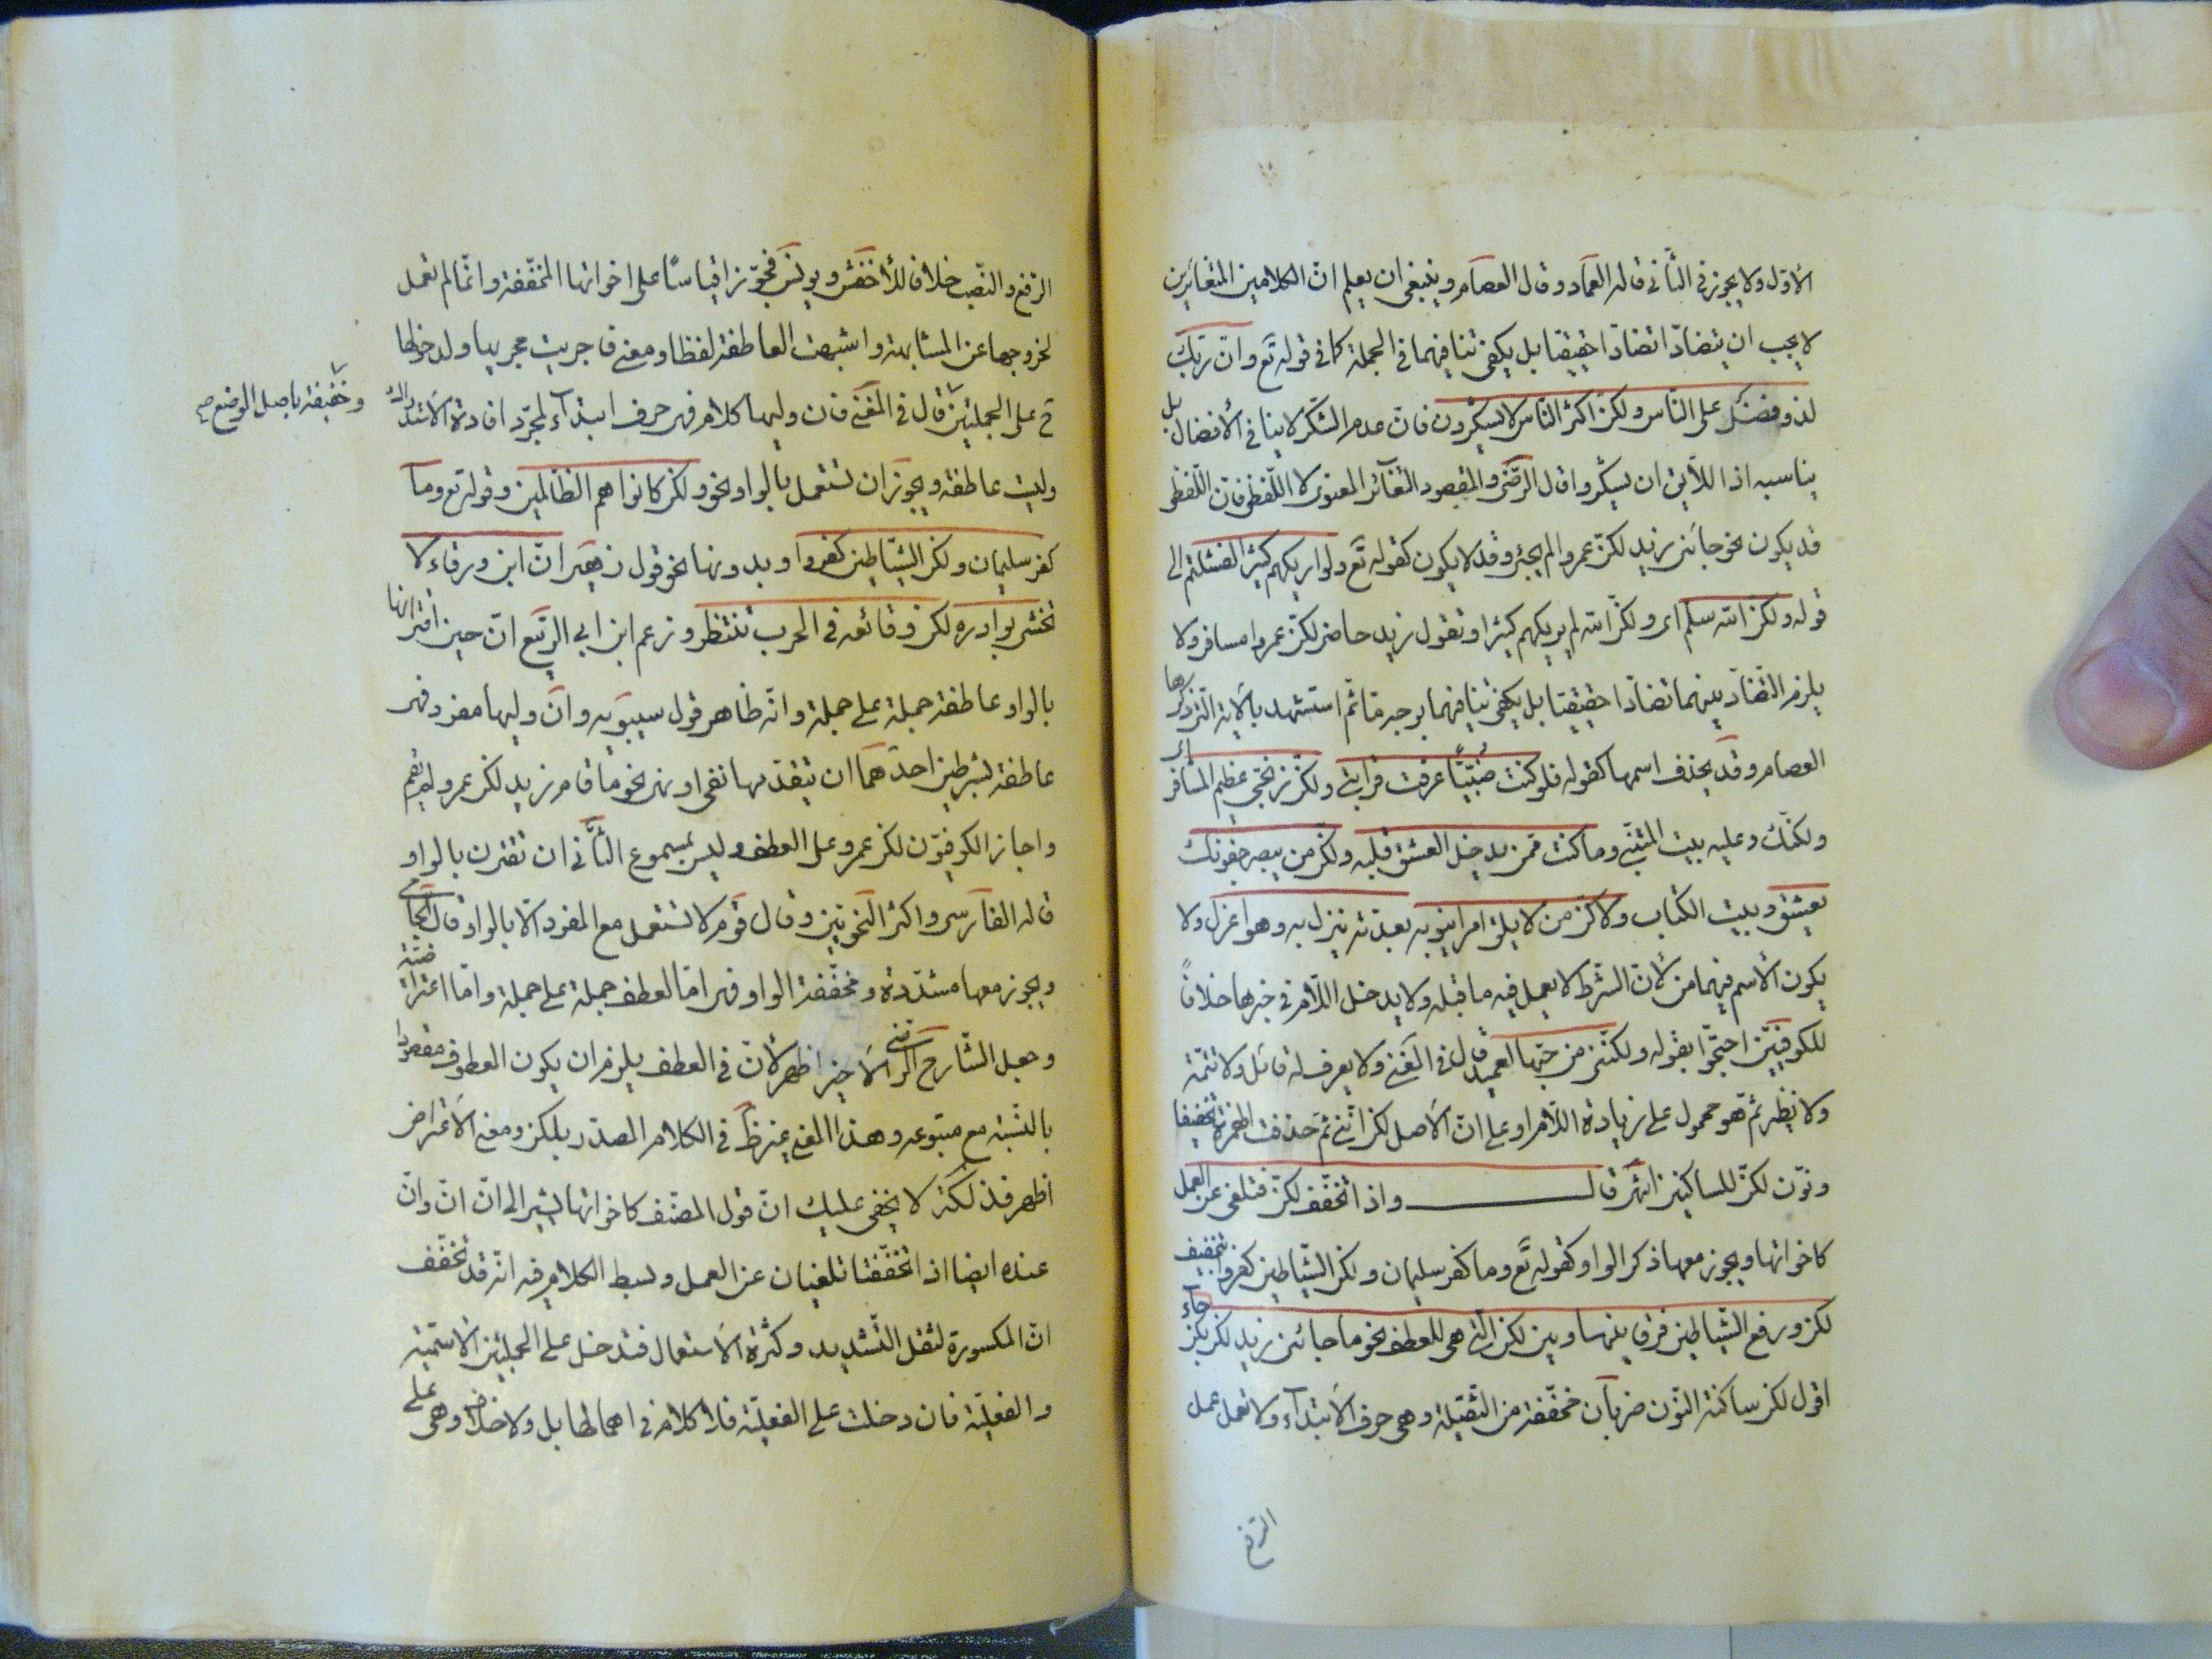 الاوّل ولا يجوز في الثّاني قاله العماد وقال العصام وينبغي ان يعلم انّ الكلامين المتغايرين
لا يجب ان يتضادّا تضادّا حقيقيا بل يكفي تنافيهما في الجملة كما في قوله تع وانّ ربّك
لذو فضل على النّاس ولكنّ اكثر النّاس لا يشكرون فانّ عدم الشّكر لا ينافي الأفضال بل
يناسبه اذ اللّايق ان يشكروا قال الرّضى والمقصود التّغاير المعنوى لا اللّفظى فانّ اللّفظى
قد يكون نحو جائنى زيد لكنّ عمروا لم يجئ وقد لا يكون كقوله تع ولو اريكهم كثيرا لفشلتم الى
قوله ولكنّ الله سلّم اى ولكنّ الله لم يريكهم كثيرا وتقول زيد حاضر لكنّ عمروا مسافر ولا
يلزم التّضادّ بينهما تضادّا حقيقيّا بل يكفي تنافيهما بوجه مّا ثمّ استشهد بالآية الّتى ذكرها
العصام وقد يحذف اسمها كقوله فلو كنت ضبّيّا عرفت قرابتى ولكنّ زنجىّ عظيم المشافر اى
ولكنّك وعليه بيت المتنبّى وما كنت ممّن يدخل العشق قلبه ولكنّ من يبصر جفونك
يعشق وبيت الكتاب ولاكنّ من لا يلق امرا ينوبه بعدّته ينزل به وهو اعزل ولا
يكون الأسم فيهما من لأنّ الشّرط لا يعمل فيه ما قبله ولا يدخل اللّام في خبرها خلافا
للكوفيّين احتجّوا بقوله ولكنّنى من حبّها لعميد قال فى المغنى ولا يعرف له قائل ولا تتمّة
ولا نظير ثمّ هو محمول على زيادة اللّام او على انّ الاصل لكن انّنى ثمّ حذفت الهمزة تخفيفا
ونون لكن للساكنين انتهى قال واذا تخفّف لكنّ فتلغى عن العمل
كاخواتها ويجوز معها ذكر الواو كقوله تع وما كفر سليمان ولكن الشّياطين كفروا بتخفيف
لكن ورفع الشّياطين فرق بينها وبين لكن الّتى هى للعطف نحو ما جائنى زيد لكن بكر جاء
اقول لكن ساكنة النّون ضربان مخفّفة من الثّقيلة وهى حرف الأبتداء ولا تعمل عمل
الرّفع
الرّفع والنّصب خلافا للأخفش ويونس فجوّزا قياسًا على اخواتها المخفّفة وانّما لم تعمل
لخروجها عن المشابهة واشبهت العاطفة لفظا ومعنى فاجريت مجريها ولدخولها
ح على الجملتين قال فى المغنى فان وليها كلام فهى حرف ابتداء لمجرّد افادة الاستدراك
وخفيفة باصل الوضع صح
وليت عاطفة ويجوز ان تستعمل بالواو نحو ولكن كانوا هم الظّالمين وقوله تع وما
كفر سليمان ولكن الشّياطين كفروا وبدونها نحو قول زهير انّ ابن ورقاء لا
تخشى بوادره لكن وقائعه فى الحرب تنتظر وزعم ابن ابى الرّبيع انّ حين اقترانها
بالواو عاطفة جملة على جملة وانّه ظاهر قول سيبويه وان وليها مفرد فهى
عاطفة بشرطين احدهما ان يتقدّمها نفى او نهى نحو ما قام زيد لكن عمرو لم يقم
واجاز الكوفيّون لكن عمرو على العطف وليس بمسموع الثّانى ان تقترن بالواو
قاله الفارسى واكثر النّحويّين وقال قوم لا تستعمل مع المفرد الّا بالواو قال الجامى
ويجوز معها مشدّدة ومخفّفة الواو فهى امّا لعطف جملة على جملة وامّا اعتراضيّة
وجعل الشّارح الرّضى الأخير اظهر لأنّ فى العطف يلزم ان يكون المعطوف مقصودا
بالنّسبة مع متبوعه وهذا المعنى غير ظ فى الكلام المصدّر بلكن ومعنى الاعتراض
اظهر فذلكة لا يخفى عليك انّ قول المصنّف كاخواتها يشير الى انّ انّ وانّ
عنده ايضا اذ اتخفّفتا تلغيان عن العمل وبسط الكلام فيه انّه قد تخفّف
انّ المكسورة لثقل التّشديد وكثرة الاستعمال فتدخل على الجملتين الاسميّة
والفعليّة فان دخلت على الفعليّة فلا كلام فى اهمالها بل ولا خلاف وهى على